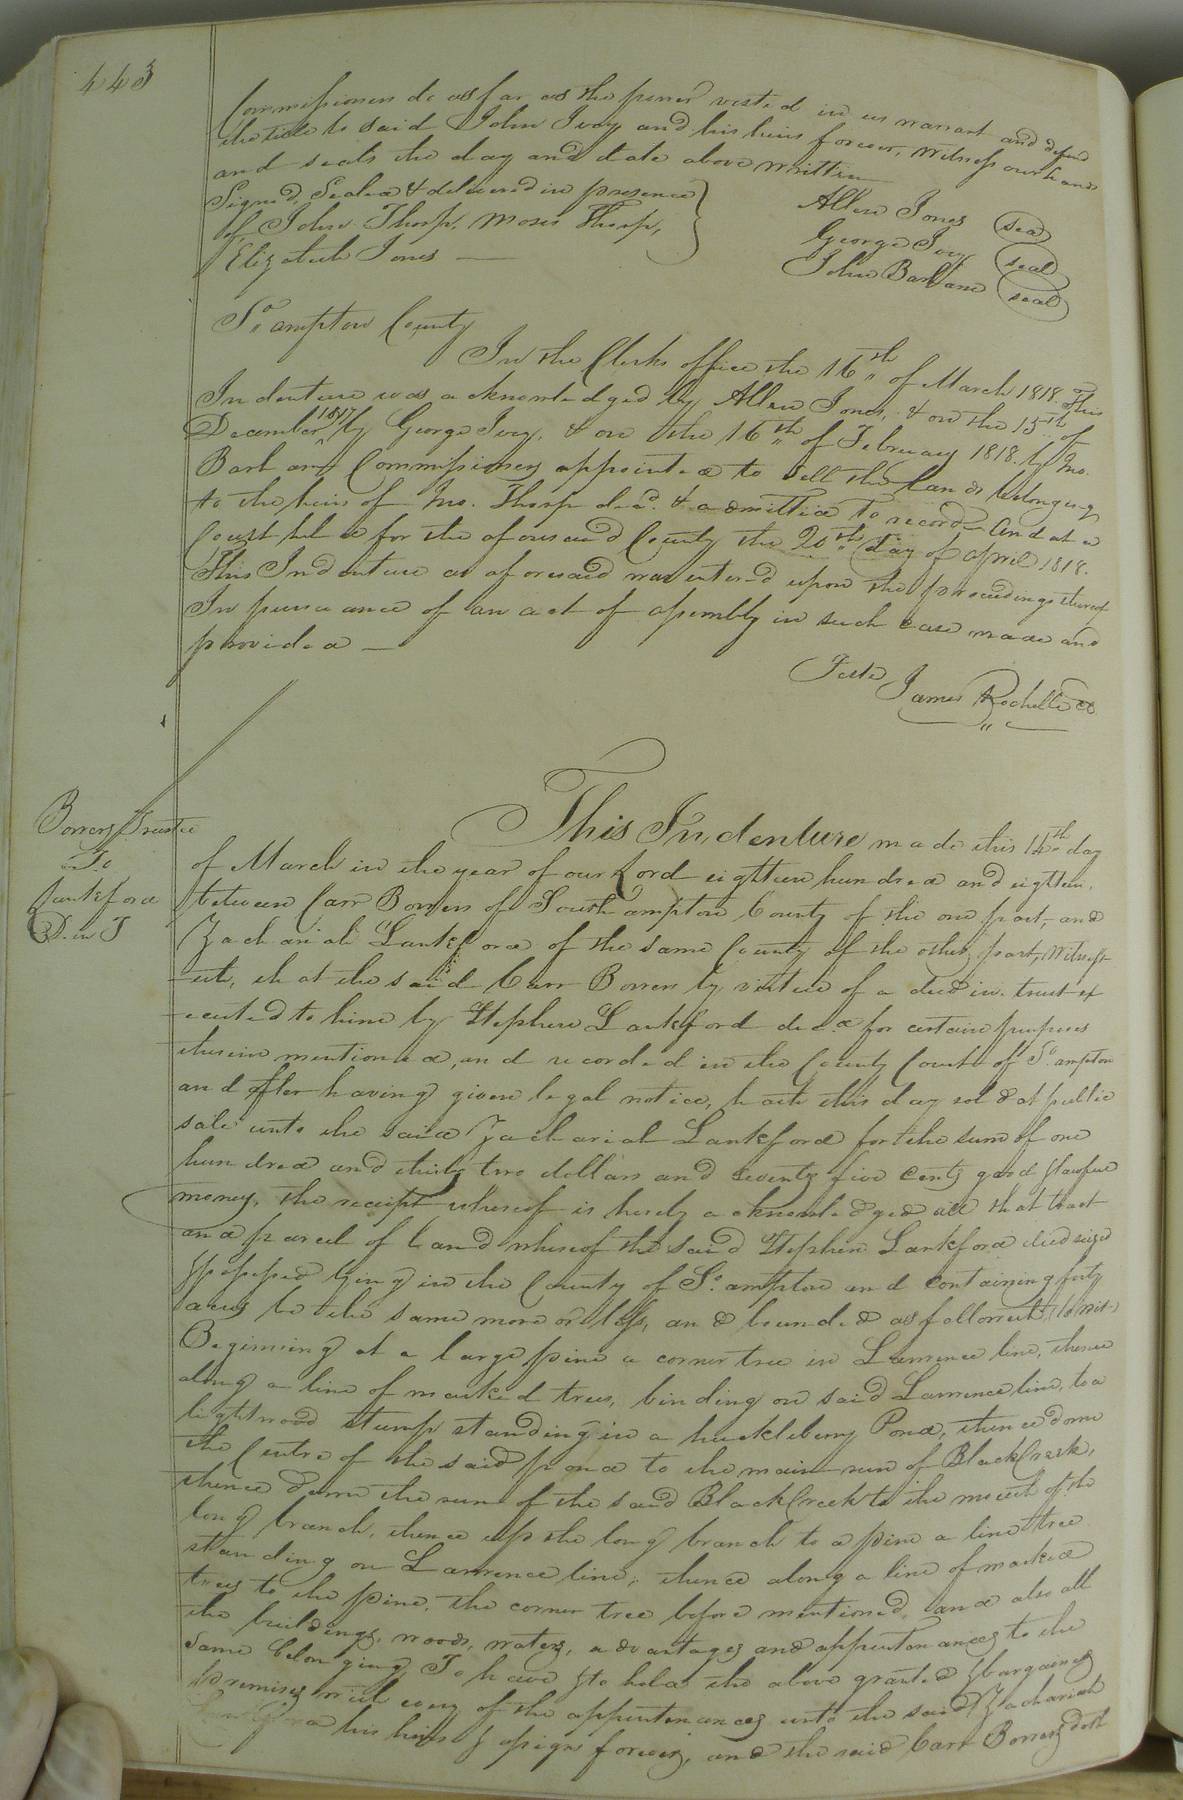 443
Commissioners do as far as the power vested in us warrant and defend
the title to said John Ivey and his heirs forever, Witness our hands
and seals the day and date above written
Signed, Sealed & delivered in presence
of John Thorp, Moses Thorp,
Elizabeth Jones —
Allen Jones (seal)
George Ivey (seal)
John Barham (seal)
So. ampton County
In the Clerks office the 16th of March 1818. This
Indenture was acknowledged by Allen Jones, & on the 15th of
December 1817 by George Ivey, & on the 16th of February 1818. by Jno.
Barham Commissioners appointed to sell the lands belonging
to the heirs of Jno. Thorp decd. & admitted to record And at a
Court held for the aforesaid County the 20th day of April 1818.
This Indenture as aforesaid was entered upon the proceedings thereof
In pursuance of an act of assembly in such case made and
provided —
Teste
James Rochelle Co
Bowers Trustee
To
Lankford
D. in T
This Indenture made this 14th day
of March in the year of our Lord eighteen hundred and eighteen,
between Carr Bowers of Southampton County of the one part, and
Zachariah Lankford of the same County of the other part, Witness-
eth, that the said Carr Bowers by virtue of a deed in trust ex
-ecuted to him by Stephen Lankford decd. for certain purposes
therein mentioned, and recorded in the County Court of So. ampton
and after having given legal notice, hath this day sold at public
sale unto the said Zachariah Lankford for the sum of one
hundred and thirty two dollars and seventy five cents good & lawful
money, the receipt whereof is hereby acknowledged all that tract
and parcel of land whereof the said Stephen Lankford died seized
& possessed lying in the County of So. ampton and containing forty
acres be the same more or less, and bounded as followeth, (to wit)
Beginning at a large pine a corner tree in Lawrence line, thence
along a line of marked trees, binding on said Lawrence line, to a
lightwood stump standing in a huckleberry Pond, thence down
the Centre of the said pond to the main run of Black Creek,
thence down the run of the said Black Creek to the mouth of the
long branch, thence up the long branch to a pine a line tree
standing on Lawrence line; thence along a line of marked
trees to the pine, the corner tree before mentioned, and also all
the buildings, woods, waters, advantages and appurtenances to the
same belonging, To have & to hold the above granted & bargained
premises with every of the appurtenances unto the said Zachariah
Lankford his heirs & assigns forever, and the said Carr Bowers doth